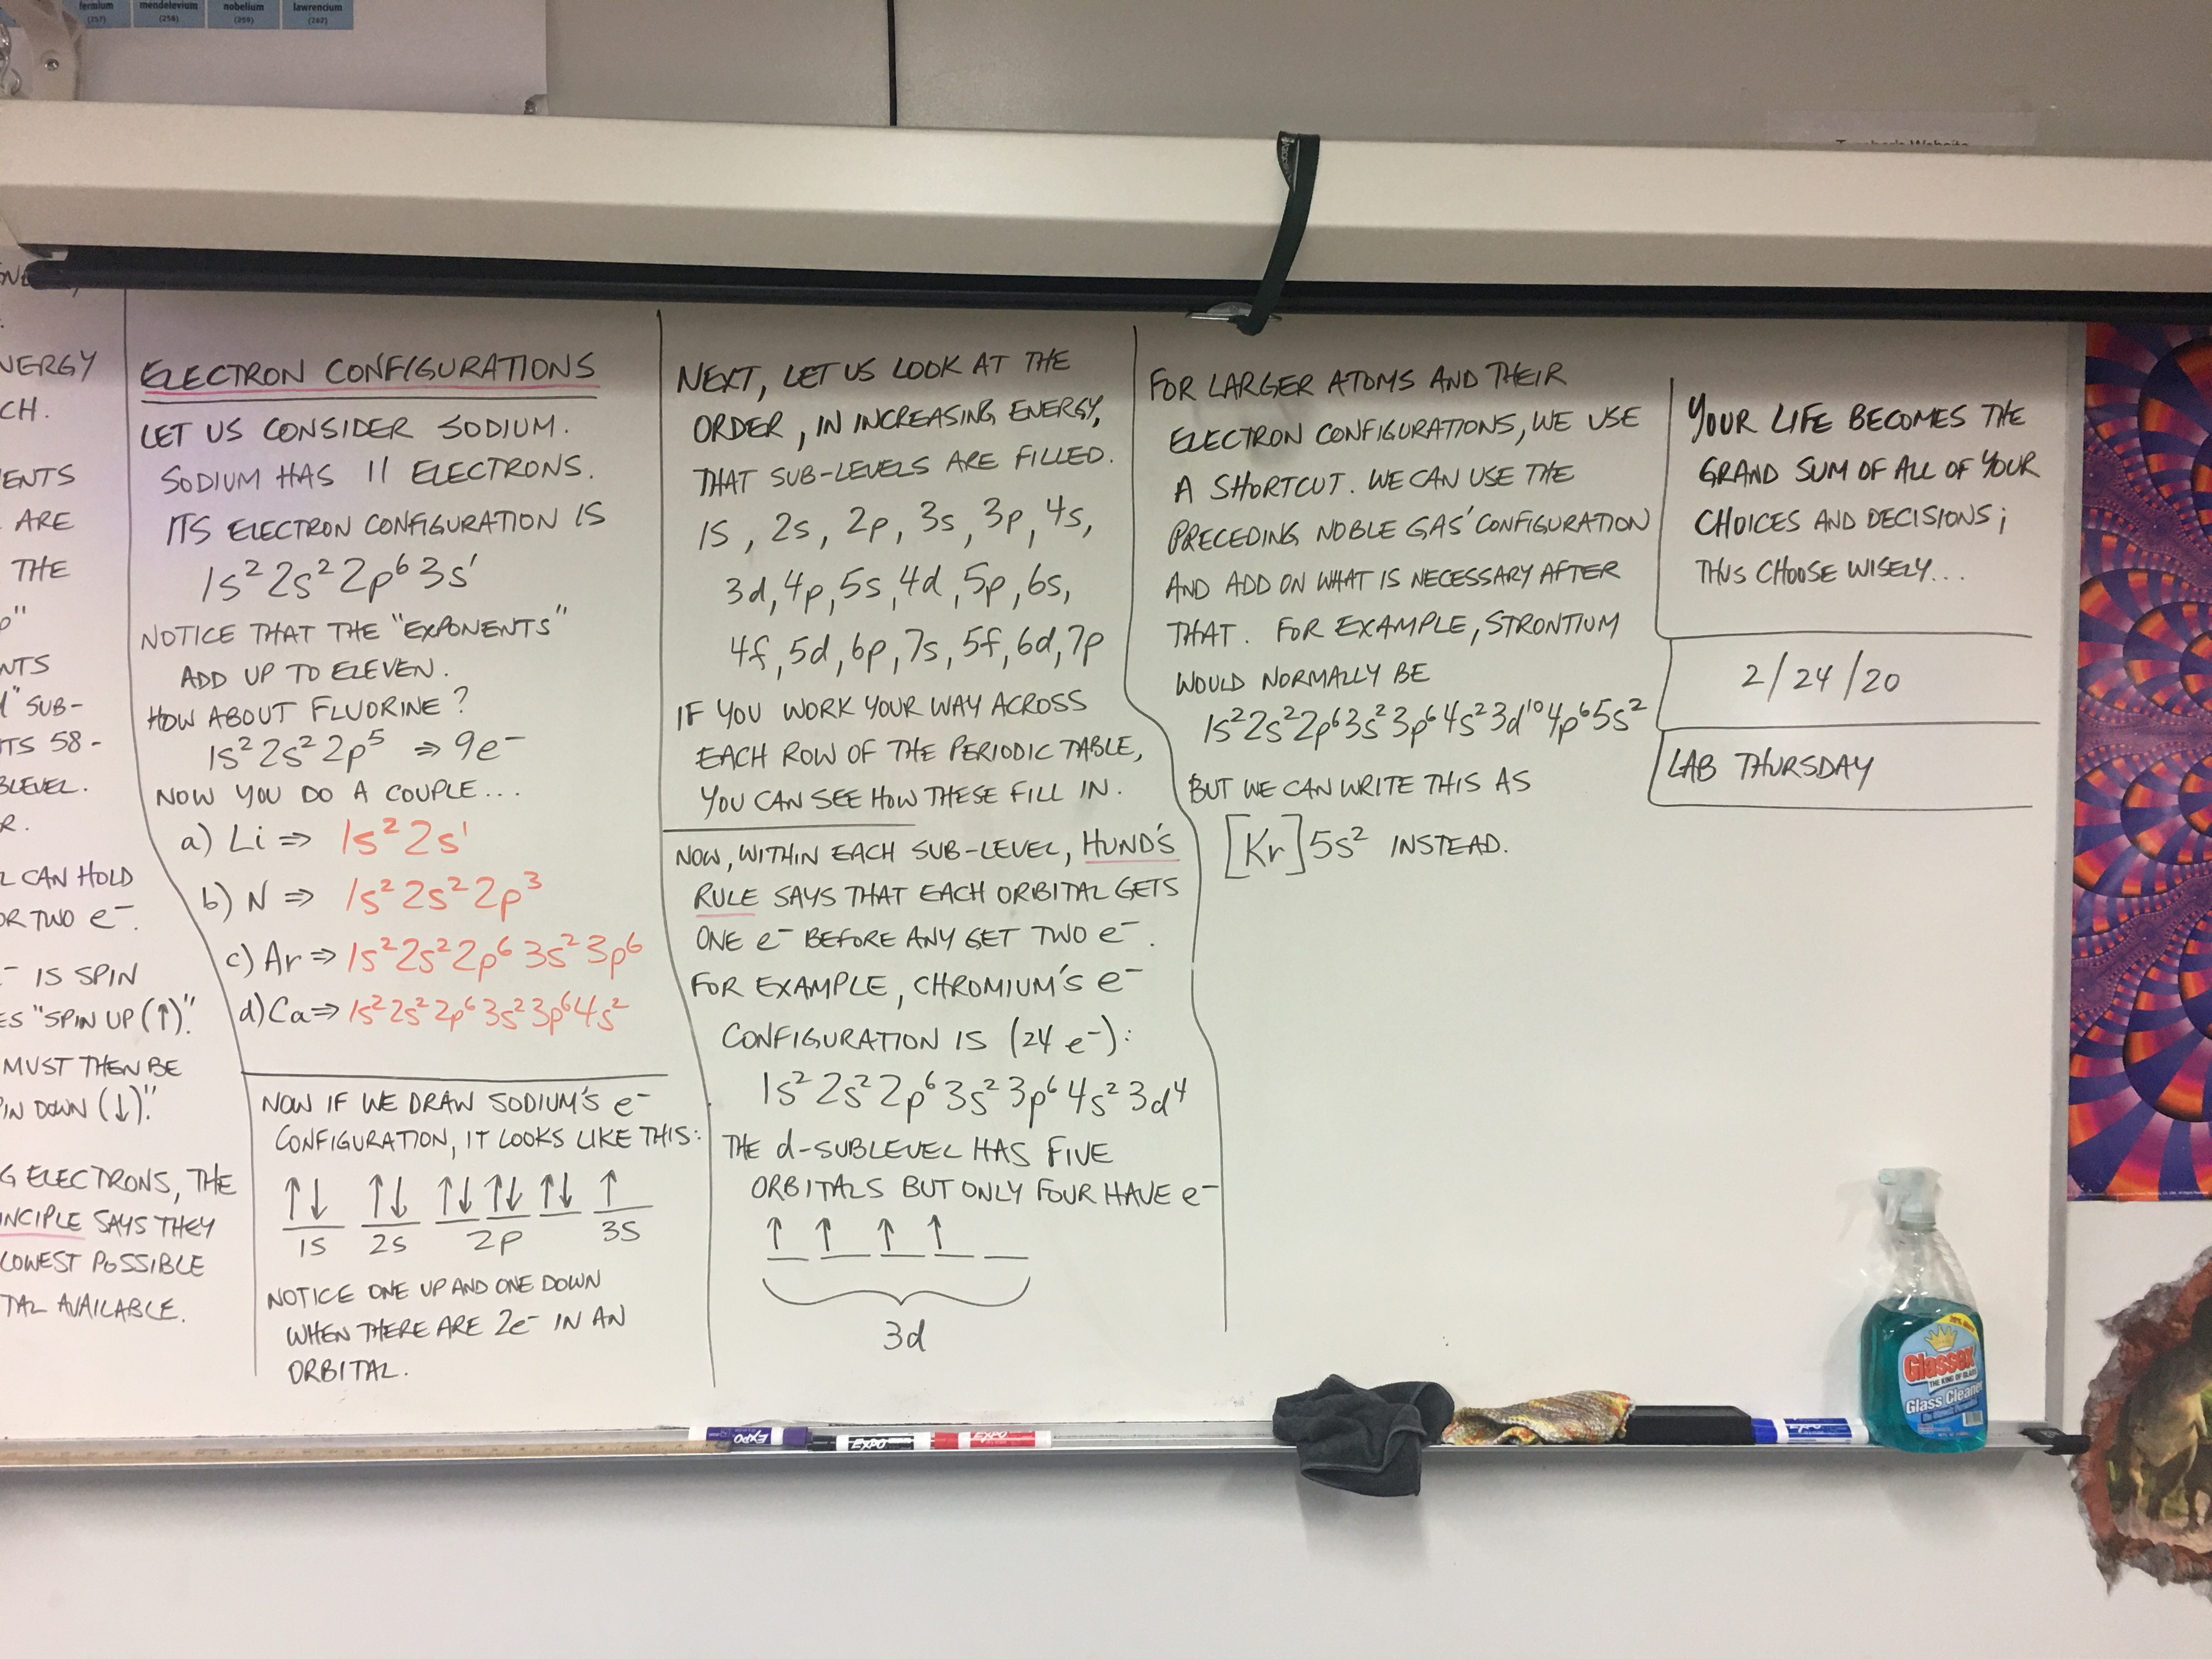 fermium mendelevium nobelium lawrencium
(257) (258) (259) (262)
NERGY
CH.
ENTS
ARE
THE
NTS
SUB-
TS 58-
BLEVEL.
R.
L CAN HOLD
OR TWO e⁻.
⁻ IS SPIN
ES "SPIN UP (↑)."
MUST THEN BE
IN DOWN (↓)."
G ELECTRONS, THE
INCIPLE SAYS THEY
LOWEST POSSIBLE
TAL AVAILABLE.
ELECTRON CONFIGURATIONS
LET US CONSIDER SODIUM.
SODIUM HAS 11 ELECTRONS.
ITS ELECTRON CONFIGURATION IS
1s² 2s² 2p⁶ 3s¹
NOTICE THAT THE "EXPONENTS"
ADD UP TO ELEVEN.
HOW ABOUT FLUORINE?
1s² 2s² 2p⁵ ⇒ 9e⁻
NOW YOU DO A COUPLE...
a) Li ⇒ 1s² 2s¹
b) N ⇒ 1s² 2s² 2p³
c) Ar ⇒ 1s² 2s² 2p⁶ 3s² 3p⁶
d) Ca ⇒ 1s² 2s² 2p⁶ 3s² 3p⁶ 4s²
NOW IF WE DRAW SODIUM'S e⁻
CONFIGURATION, IT LOOKS LIKE THIS:
↑↓ ↑↓ ↑↓ ↑↓ ↑↓ ↑
1s 2s 2p 3s
NOTICE ONE UP AND ONE DOWN
WHEN THERE ARE 2e⁻ IN AN
ORBITAL.
NEXT, LET US LOOK AT THE
ORDER, IN INCREASING ENERGY,
THAT SUB-LEVELS ARE FILLED.
1s, 2s, 2p, 3s, 3p, 4s,
3d, 4p, 5s, 4d, 5p, 6s,
4f, 5d, 6p, 7s, 5f, 6d, 7p
IF YOU WORK YOUR WAY ACROSS
EACH ROW OF THE PERIODIC TABLE,
YOU CAN SEE HOW THESE FILL IN.
NOW, WITHIN EACH SUB-LEVEL, HUND'S
RULE SAYS THAT EACH ORBITAL GETS
ONE e⁻ BEFORE ANY GET TWO e⁻.
FOR EXAMPLE, CHROMIUM'S e⁻
CONFIGURATION IS (24 e⁻):
1s² 2s² 2p⁶ 3s² 3p⁶ 4s² 3d⁴
THE d-SUBLEVEL HAS FIVE
ORBITALS BUT ONLY FOUR HAVE e⁻
↑ ↑ ↑ ↑
3d
FOR LARGER ATOMS AND THEIR
ELECTRON CONFIGURATIONS, WE USE
A SHORTCUT. WE CAN USE THE
PRECEDING NOBLE GAS' CONFIGURATION
AND ADD ON WHAT IS NECESSARY AFTER
THAT. FOR EXAMPLE, STRONTIUM
WOULD NORMALLY BE
1s² 2s² 2p⁶ 3s² 3p⁶ 4s² 3d¹⁰ 4p⁶ 5s²
BUT WE CAN WRITE THIS AS
[Kr] 5s² INSTEAD.
YOUR LIFE BECOMES THE
GRAND SUM OF ALL OF YOUR
CHOICES AND DECISIONS;
THUS CHOOSE WISELY...
2/24/20
LAB THURSDAY
EXPO
EXPO
EXPO
Glassex
THE KING OF GLASS
Glass Cleaner